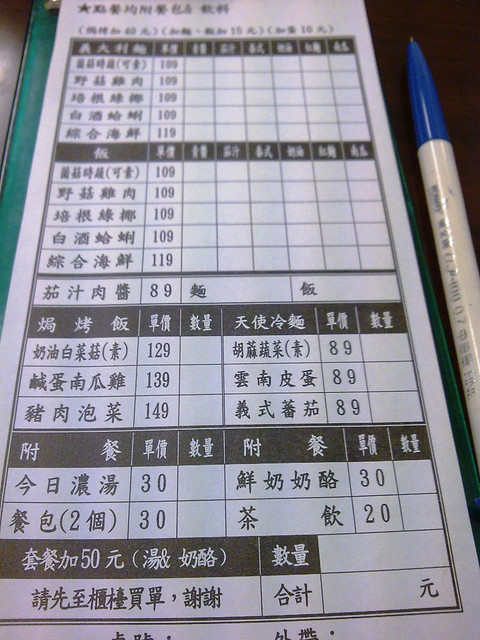 ★點餐均附餐包& 飲料
(焗烤加 40 元)(加麵、飯加 15 元)(加蛋 10 元)
義大利麵 單價 青醬 茄汁 泰式 奶油 紅麴 南瓜
菌菇時蔬(可素) 109
野菇雞肉 109
培根綠椰 109
白酒蛤蜊 109
綜合海鮮 119
飯 單價 青醬 茄汁 泰式 奶油 紅麴 南瓜
菌菇時蔬(可素) 109
野菇雞肉 109
培根綠椰 109
白酒蛤蜊 109
綜合海鮮 119
茄汁肉醬 89 麵 飯
焗烤飯 單價 數量 天使冷麵 單價 數量
奶油白菜菇(素) 129 胡麻蔬菜(素) 89
鹹蛋南瓜雞 139 雲南皮蛋 89
豬肉泡菜 149 義式蕃茄 89
附餐 單價 數量 附餐 單價 數量
今日濃湯 30 鮮奶奶酪 30
餐包(2個) 30 茶飲 20
套餐加50元(湯& 奶酪) 數量
請先至櫃檯買單，謝謝 合計 元